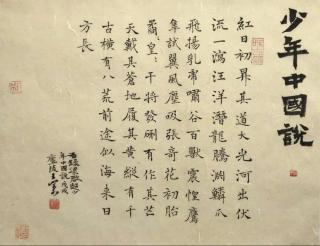 少年中國說
紅日初昇其道大光河出伏
流一瀉汪洋潛龍騰淵鱗爪
飛揚乳虎嘯谷百獸震惶鷹
隼試翼風塵吸張奇花初胎
矞〻皇〻干將發硎有作其芒
天戴其蒼地履其黃縱有千
古橫有八荒前途似海來日
方長
右錄梁啟超少
年中國說戊戌